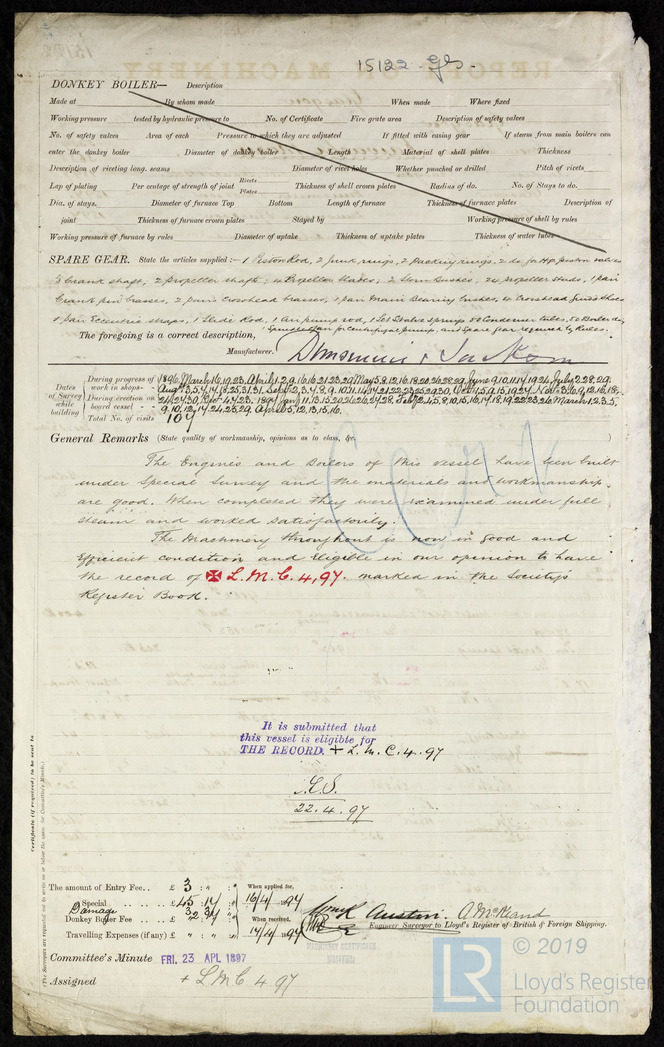 15122 Gls.
DONKEY BOILER— Description
Made at By whom made When made Where fixed
Working pressure tested by hydraulic pressure to No. of Certificate Fire grate area Description of safety valves
No. of safety valves Area of each Pressure to which they are adjusted If fitted with easing gear If steam from main boilers can
enter the donkey boiler Diameter of donkey boiler Length Material of shell plates Thickness
Description of riveting long. seams Diameter of rivet holes Whether punched or drilled Pitch of rivets
Lap of plating Per centage of strength of joint Rivets Plates Thickness of shell crown plates Radius of do. No. of Stays to do.
Dia. of stays. Diameter of furnace Top Bottom Length of furnace Thickness of furnace plates Description of
joint Thickness of furnace crown plates Stayed by Working pressure of shell by rules
Working pressure of furnace by rules Diameter of uptake Thickness of uptake plates Thickness of water tubes
SPARE GEAR. State the articles supplied:— 1 Piston Rod, 2 junk rings, 2 packing rings, 2 do for HP piston valves
3 Crank shaft, 2 propeller shafts, 4 Propeller blades, 2 Stern bushes, 24 propeller studs, 1 pair
Crank pin brasses, 2 pairs Crosshead brasses, 1 pair Main Bearing bushes, 4 Crosshead guide shoes
1 pair Eccentric straps, 1 Slide Rod, 1 Air pump rod, 1 Set Valves springs 50 Condenser tubes, 50 Boiler do,
1 for Centrifugal pump, and Spare gear required by Rules.
The foregoing is a correct description,
Manufacturer. Dunsmuir & Jackson
Dates of Survey while building
During progress of work in shops - -
During erection on board vessel - - -
Total No. of visits 104
1896 March 16, 19, 23. April 1, 2, 9, 16, 16, 21, 23, 29, May 5, 8, 12, 16, 18, 20, 26, 28, 29, June 9, 10, 11, 14, 19, 26, July 2, 28, 29.
9, 10, 12, 14, 24, 25, 29, April 5, 12, 13, 15, 16.
General Remarks (State quality of workmanship, opinions as to class, &c. )
The Engines and Boilers of this vessel have been built
under Special Survey and the materials and workmanship
are good. When completed they were examined under full
steam and worked satisfactorily.
The Machinery throughout is now in good and
efficient condition and eligible in our opinion to have
the record of ✠ L.M.C. 4,97. marked in the Society's
Register Book.
It is submitted that
this vessel is eligible for
THE RECORD. + L.M.C. 4.97
22.4.97
Certificate (if required) to be sent to
The amount of Entry Fee. . £ 3 : " : "
Special . . . . £ 45 : 14 : "
Damage
Donkey Boiler Fee . . . . £
Travelling Expenses (if any) £ " : " : "
When applied for, 16/4/1897
When received, 17/4/1897
Austin. A McKeand
Engineer Surveyor to Lloyd's Register of British & Foreign Shipping.
MACHINERY CERTIFICATE
WRITTEN.
Committee's Minute FRI. 23 APL 1897
Assigned + LMC 4 97
© 2019
LR
Lloyd's Register
Foundation